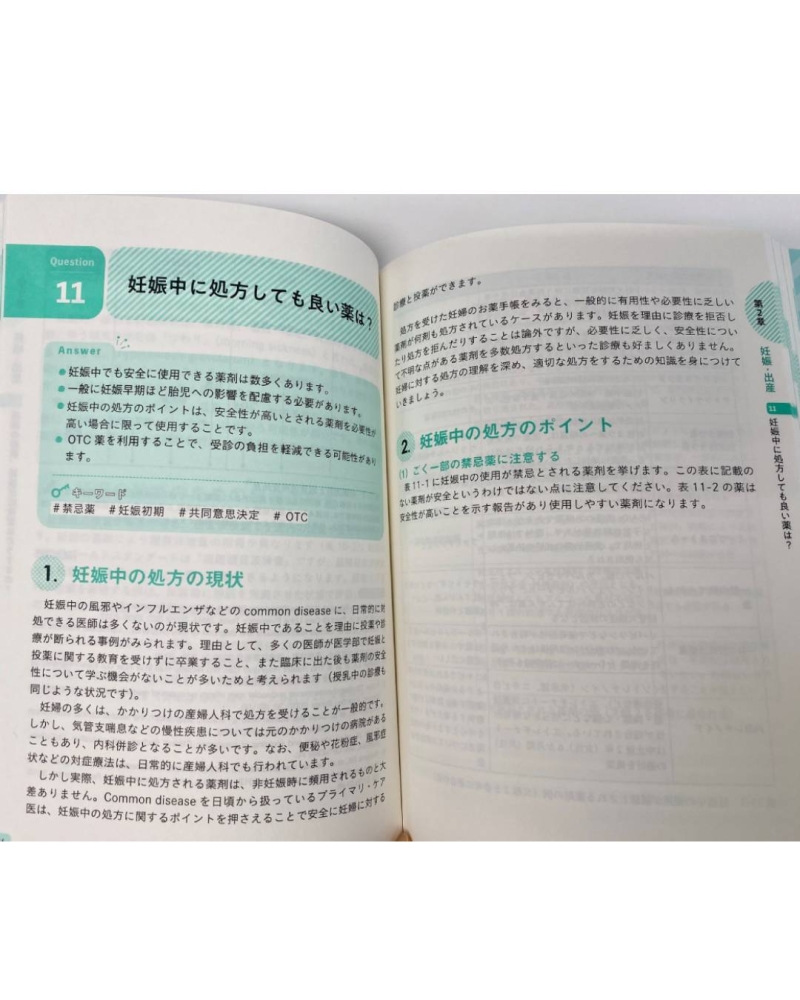 Question
11
妊娠中に処方しても良い薬は?
Answer
●妊娠中でも安全に使用できる薬剤は数多くあります。
●一般に妊娠早期ほど胎児への影響を配慮する必要があります。
●妊娠中の処方のポイントは、安全性が高いとされる薬剤を必要性が
高い場合に限って使用することです。
● OTC 薬を利用することで、受診の負担を軽減できる可能性があり
ます。
キーワード
#禁忌薬 #妊娠初期 #共同意思決定 # OTC
1. 妊娠中の処方の現状
妊娠中の風邪やインフルエンザなどの common disease に、日常的に対
処できる医師は多くないのが現状です。妊娠中であることを理由に投薬や診
療が断られる事例がみられます。理由として、多くの医師が医学部で妊娠と
投薬に関する教育を受けずに卒業すること、また臨床に出た後も薬剤の安全
性について学ぶ機会がないことが多いためと考えられます（授乳中の診療も
同じような状況です）。
妊婦の多くは、かかりつけの産婦人科で処方を受けることが一般的です。
しかし、気管支喘息などの慢性疾患については元のかかりつけの病院がある
こともあり、内科併診となることが多いです。なお、便秘や花粉症、風邪症
状などの対症療法は、日常的に産婦人科でも行われています。
しかし実際、妊娠中に処方される薬剤は、非妊娠時に頻用されるものと大
差ありません。Common disease を日頃から扱っているプライマリ・ケア
医は、妊娠中の処方に関するポイントを押さえることで安全に妊婦に対する
診療と投薬ができます。
処方を受けた妊婦のお薬手帳をみると、一般的に有用性や必要性に乏しい
薬剤が何剤も処方されているケースがあります。妊娠を理由に診療を拒否し
たり処方を拒んだりすることは論外ですが、必要性に乏しく、安全性につい
て不明な点がある薬剤を多数処方するといった診療も好ましくありません。
妊婦に対する処方の理解を深め、適切な処方をするための知識を身につけて
いきましょう。
2. 妊娠中の処方のポイント
(1) ごく一部の禁忌薬に注意する
表 11-1 に妊娠中の使用が禁忌とされる薬剤を挙げます。この表に記載の
ない薬剤が安全というわけではない点に注意してください。表 11-2 の薬は
安全性が高いことを示す報告があり使用しやすい薬剤になります。
第2章
妊娠・出産
11 妊娠中に処方しても良い薬は?